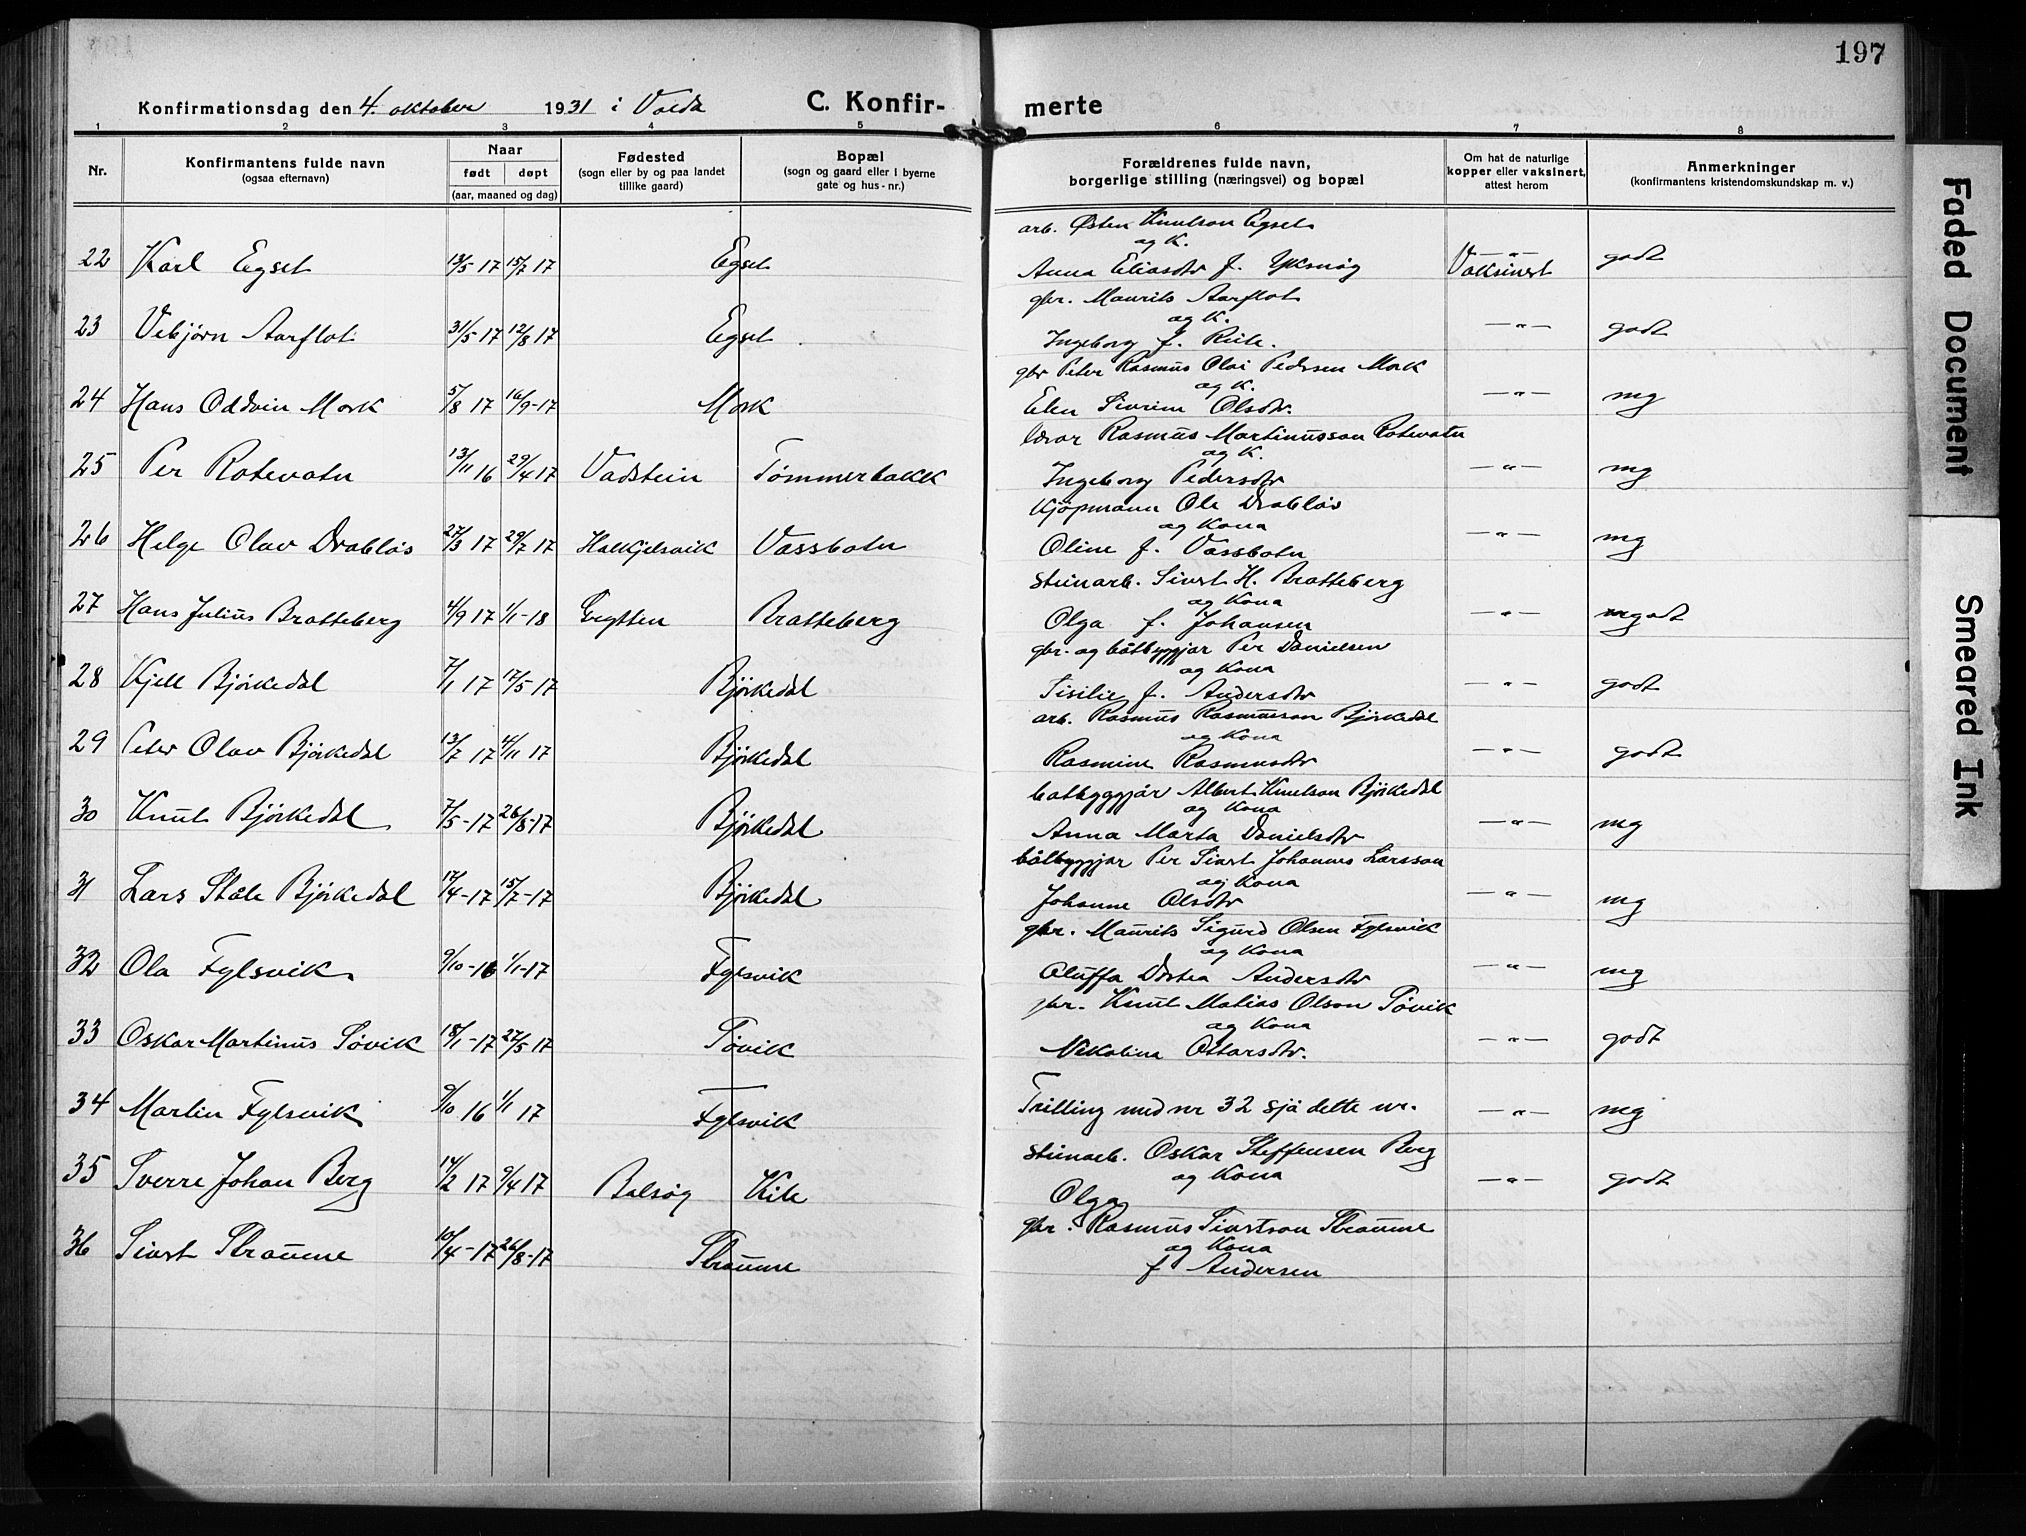 197
Konfirmationsdag den 4. oktober 1931 i Volda
C. Konfir-
merte
1 2 3 4 5 6 7 8
Nr.
Konfirmantens fulde navn
(ogsaa efternavn)
Naar
født døpt
(aar, maaned og dag)
Fødested
(sogn eller by og paa landet
tillike gaard)
Bopæl
(sogn og gaard eller i byerne
gate og hus-nr.)
Forældrenes fulde navn,
borgerlige stilling (næringsvei) og bopæl
Om hat de naturlige
kopper eller vaksinert,
attest herom
Anmerkninger
(konfirmantens kristendomskundskap m. v.)
arb. Østen Knutson Egset
og K.
22 Karl Egset 13/5 17 15/7 17 Egset Anna Eliasdtr f. Yksnøy Vaksinert godt
gbr. Maurits Aarflot
og K.
23 Vebjørn Aarflot 31/5 17 12/8 17 Egset Ingeborg f. Rite. —"— godt
gbr Peter Rasmus Olai Pedersen Mork
og K.
24 Hans Oddvin Mork 5/8 17 16/9-17 Mork Elen Sivrine Olsdtr. —"— mg
lærar Rasmus Martinusson Rotevatn
og K.
25 Per Rotevatn 13/11 16 29/4 17 Vadstein Tømmerbakk Ingeborg Pedersdtr —"— mg
Kjøpmann Ole Drabløs
og Kona
26 Helge Olav Drabløs 27/3 17 29/7 17 Halkjelsvik Vassbotn Oline f. Vassbotn —"— mg
steinarb. Sivert H. Bratteberg
og Kona
27 Hans Julius Bratteberg 4/9 17 1/1-18 Grytten Bratteberg Olga f. Johansen —"— godt
gbr. og båtbyggjar Per Danielsen
og Kona
28 Kjell Bjørkedal 7/1 17 17/5-17 Bjørkedal Sisilie f. Andersdtr —"— godt
arb. Rasmus Rasmusson Bjørkedal
og Kona
29 Peter Olav Bjørkedal 13/7 17 4/11 17 Bjørkedal Rasmine Rasmusdtr —"— godt
båtbyggjar Albert Knutson Bjørkedal
og Kona
30 Knut Bjørkedal 7/5-17 26/8-17 Bjørkedal Anna Marta Danielsdtr —"— mg
båtbyggjar Per Sivert Johannes Larsson
og Kona
31 Lars Ståle Bjørkedal 17/4-17 15/7-17 Bjørkedal Johanne Olsdtr —"— mg
gbr. Maurits Sigurd Olsen Fylsvik
og Kona
32 Ola Fylsvik 9/10-16 1/1-17 Fylsvik Oluffa Dortea Andersdtr —"— mg
gbr. Knut Matias Olson Søvik
og Kona
33 Oskar Martinus Søvik 18/1-17 27/5 17 Søvik Nikolina Ottarsdtr. —"— godt
34 Martin Fylsvik 9/10 16 1/1 17 Fylsvik Trilling med nr 32 sjå dette nr. —"— mg
steinarb. Oskar Steffensen Berg
og Kona
35 Sverre Johan Berg 14/2 17 9/4 17 Balsøy Kile Olga —"— godt
gbr. Rasmus Sivertson Straume
og Kona
36 Sivert Straume 10/4-17 26/8-17 Straume f Andersen
Faded Document
Smeared Ink